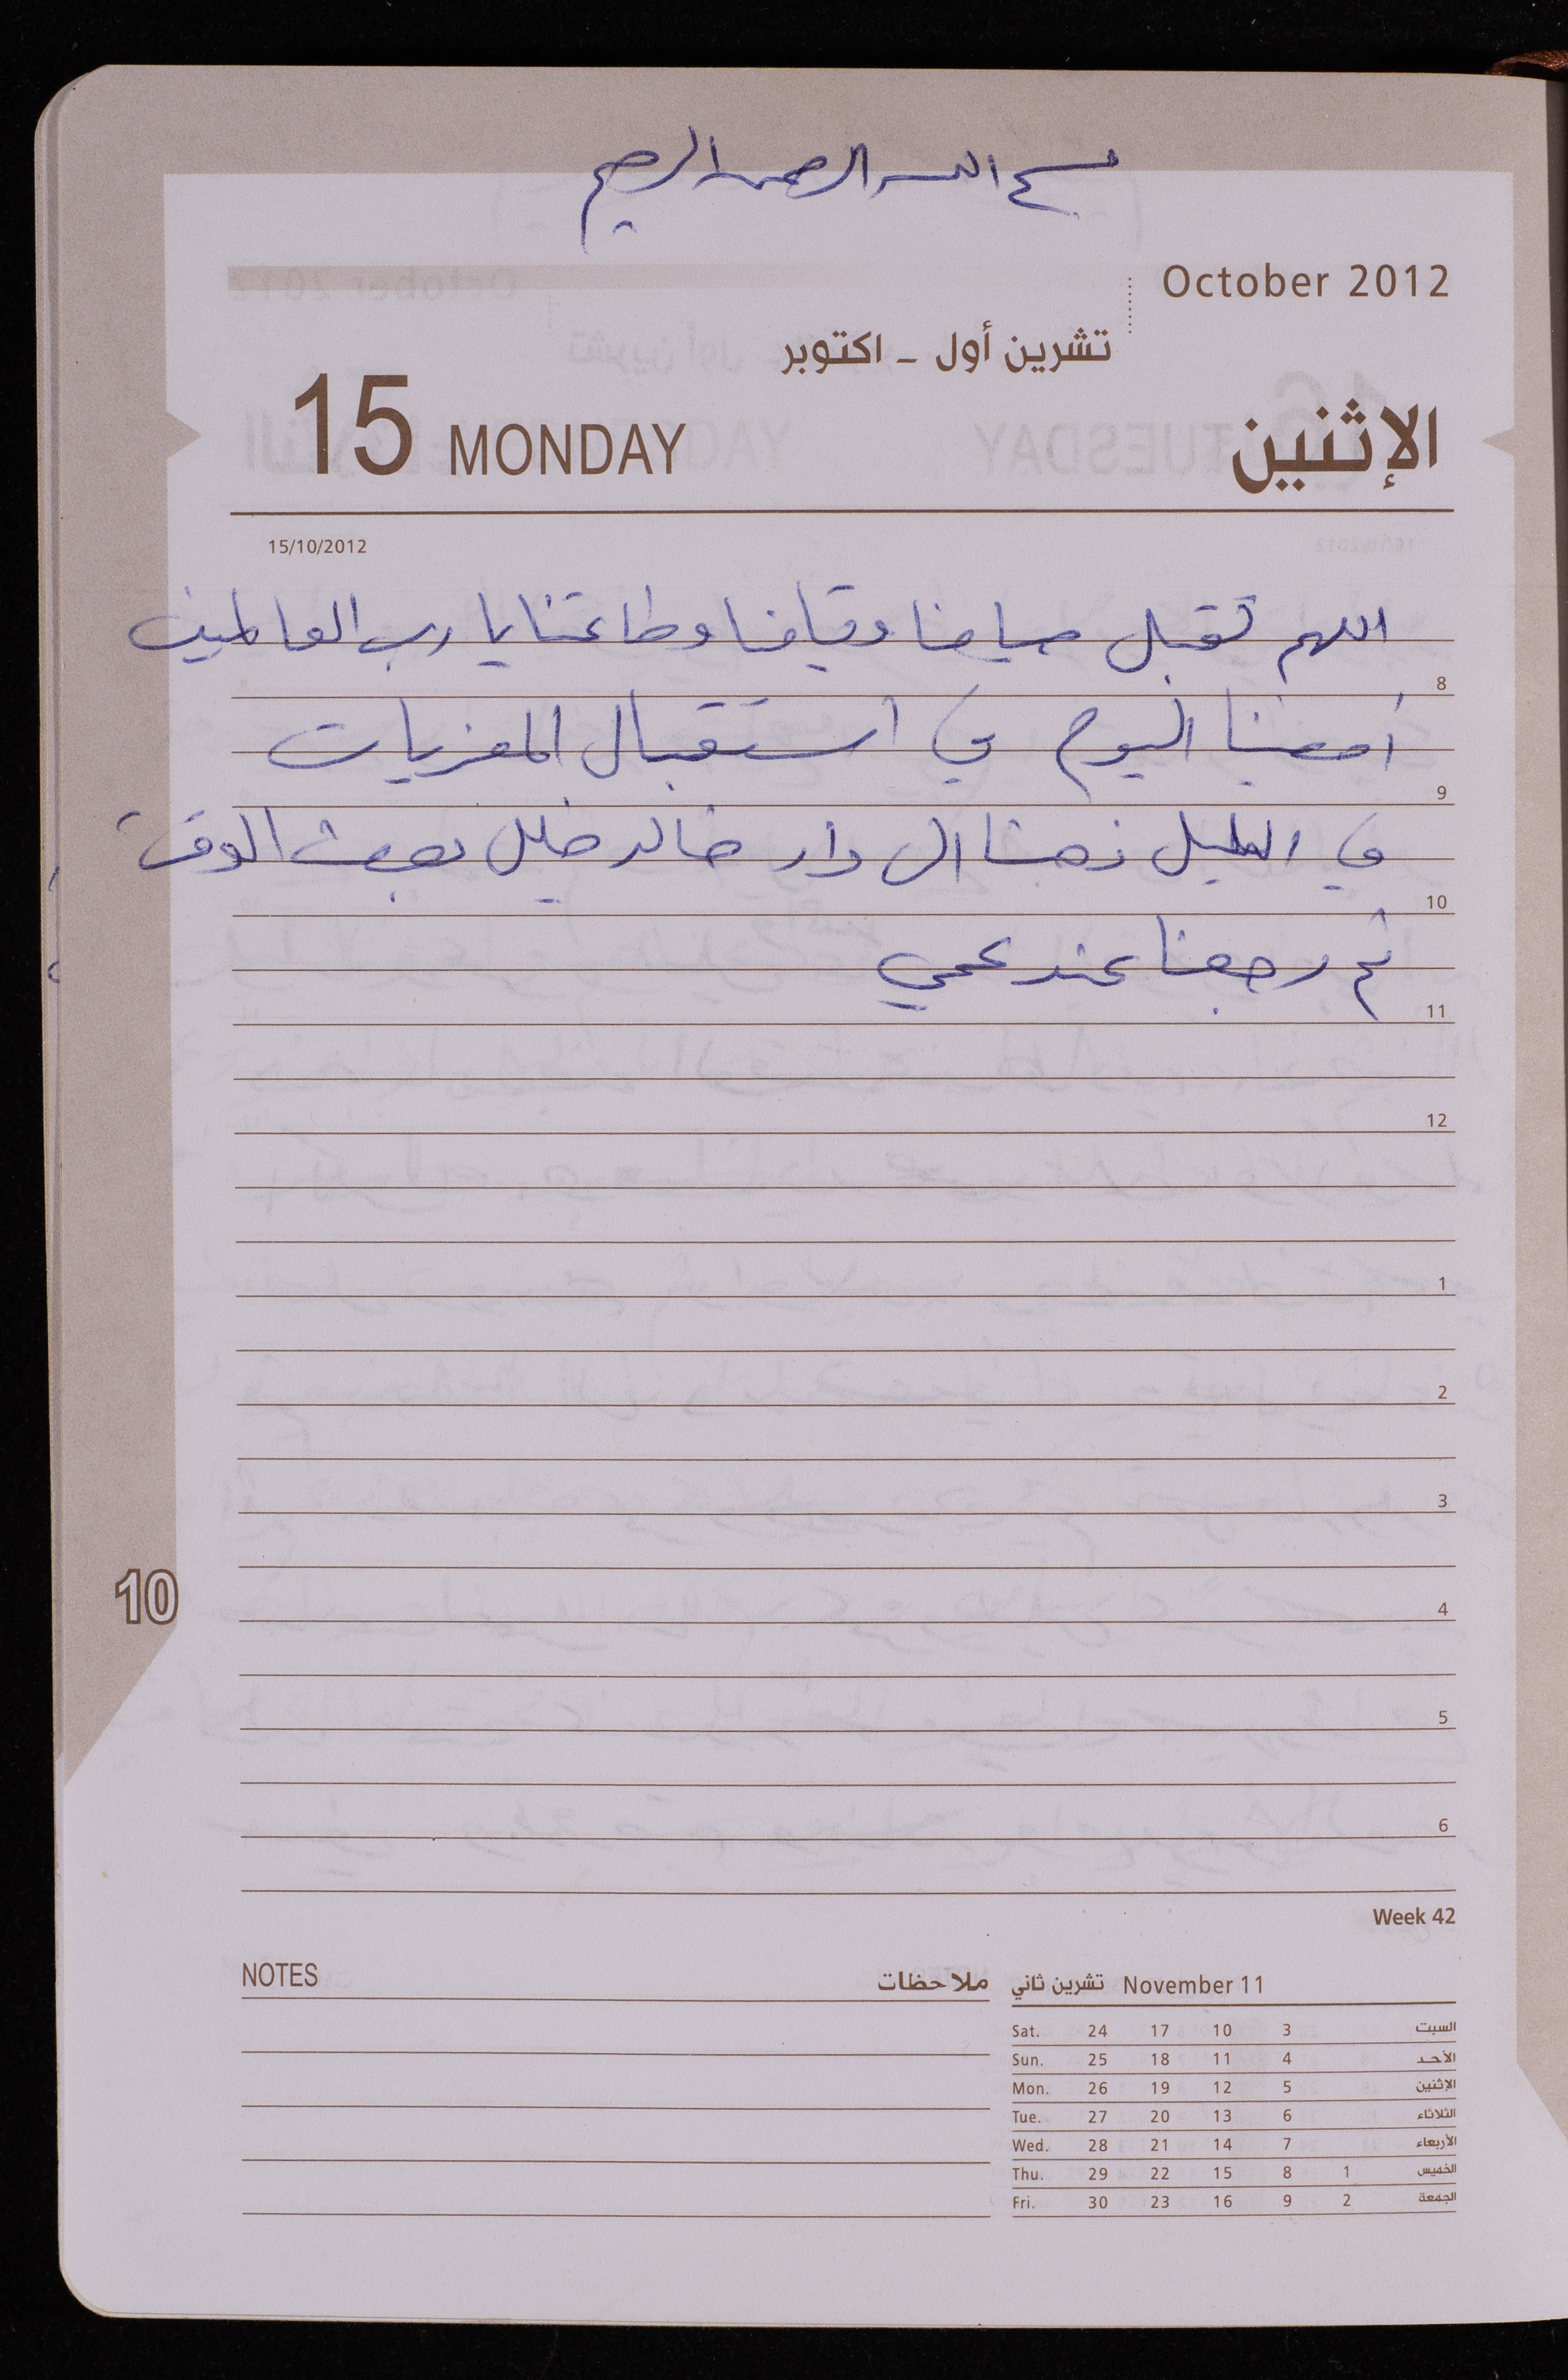 بسم الله الرحمن الرحيم
October 2012
تشرين أول - اكتوبر
15 MONDAY الإثنين
15/10/2012
اللهم تقبل صيامنا وقيامنا وطاعتنا يا رب العالمين
8
أمضينا اليوم في استقبال المعزيات
9
في الليل ذهبنا الى دار خالد خليل بعض الوقت
10
ثم رجعنا عند عمي
11
12
1
2
3
10
4
5
6
Week 42
NOTES ملاحظات
تشرين ثاني November 11
Sat. 24 17 10 3 السبت
Sun. 25 18 11 4 الأحد
Mon. 26 19 12 5 الإثنين
Tue. 27 20 13 6 الثلاثاء
Wed. 28 21 14 7 الأربعاء
Thu. 29 22 15 8 1 الخميس
Fri. 30 23 16 9 2 الجمعة